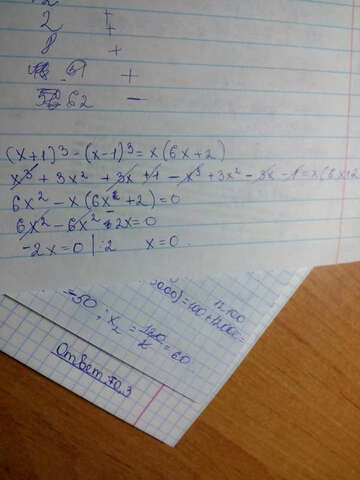 2 +
8 +
61 +
62 -
(x+1)³-(x-1)³=x(6x+2)
x³+3x²+3x+1-x³+3x²-3x-1=x(6x+2
6x²-x(6x+2)=0
6x²-6x²-2x=0
-2x=0|:2 x=0.
12100
000)=100+12000=
=50; x₂=120/2=60
Ответ 70.3